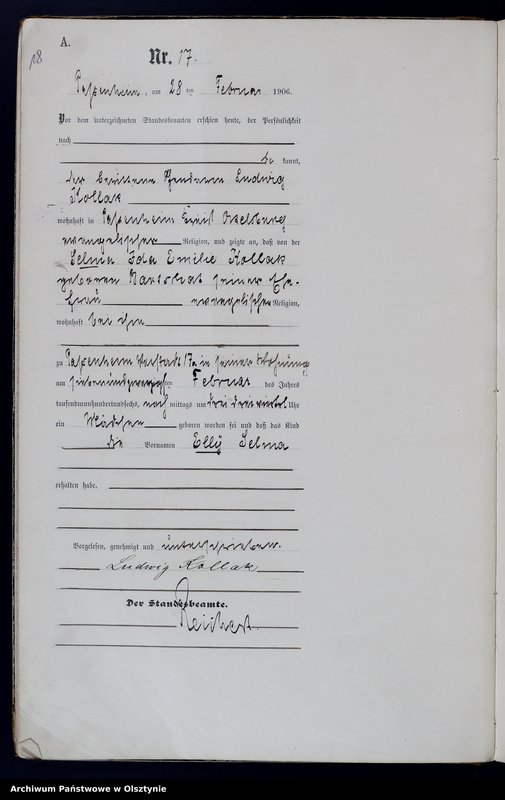 18
A.
Nr. 17.
Passenheim, am 28 ten Februar 1906.
Vor dem unterzeichneten Standesbeamten erschien heute, der Persönlichkeit
nach
be kannt,
der berittene Gendarm Ludwig
Kollak
wohnhaft in Passenheim Kreis Ortelsburg
evangelischer Religion, und zeigte an, daß von der
Selma Ida Emilie Kollak
geborenen seiner Ehe-
frau evangelischer Religion,
wohnhaft bei ihm
zu Passenheim Vorstadt 17a in seiner Wohnung
am siebenundzwanzigsten Februar des Jahres
tausendneunhundertundsechs, nach mittags um drei dreiviertel Uhr
ein Mädchen geboren worden sei und daß das Kind
die Vornamen Elly Selma
erhalten habe.
Vorgelesen, genehmigt und unterschrieben.
Ludwig Kollak
Der Standesbeamte.
Reichert
Archiwum Państwowe w Olsztynie